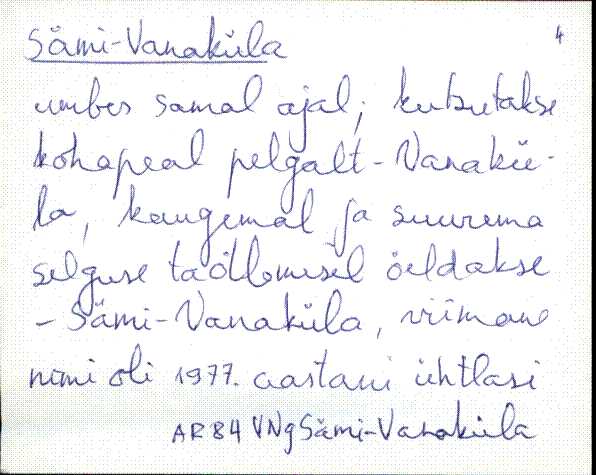 Sämi-Vanaküla 4
umbes samal ajal; kutsutakse
kohapeal pelgalt - Vanakü-
la, kaugemal ja suurema
selguse taotlemisel öeldakse
- Sämi-Vanaküla, viimane
nimi oli 1977. aastani ühtlasi
AR84 VNg Sämi-Vanaküla